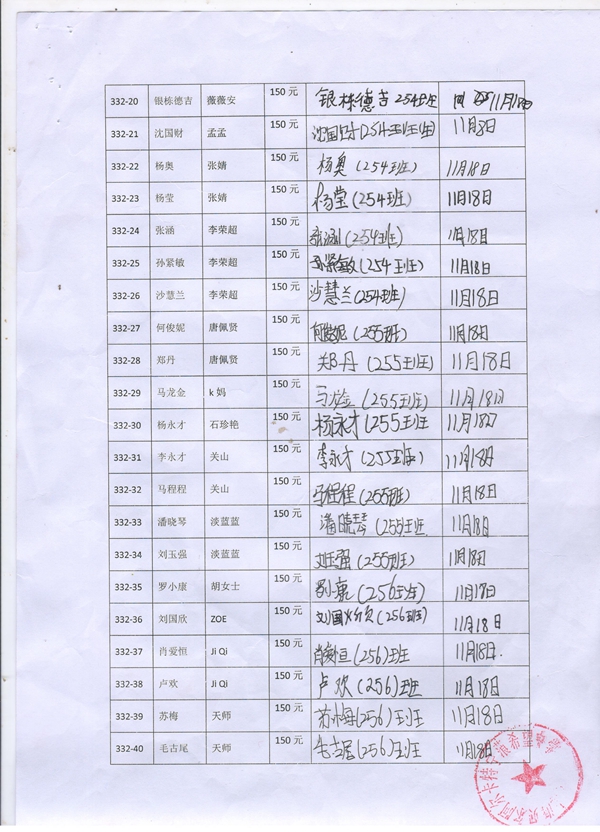 332-20 银栋德吉 薇薇安 150 元 银栋德吉254班 11月18日
332-21 沈国财 孟孟 150 元 沈国财(254班) 11月8日
332-22 杨奥 张婧 150 元 杨奥(254班) 11月18日
332-23 杨莹 张婧 150 元 杨莹(254班) 11月18日
332-24 张涵 李荣超 150 元 张涵(254班) 11月18日
332-25 孙紧敏 李荣超 150 元 孙紧敏(254班) 11月18日
332-26 沙慧兰 李荣超 150 元 沙慧兰(254班) 11月18日
332-27 何俊妮 唐佩贤 150 元 何俊妮(255班) 11月18日
332-28 郑丹 唐佩贤 150 元 郑丹(255班) 11月18日
332-29 马龙金 k 妈 150 元 马龙金(255班) 11月18日
332-30 杨永才 石珍艳 150 元 杨永才(255班 11月18日
332-31 李永才 关山 150 元 李永才(255班) 11月18日
332-32 马程程 关山 150 元 马程程(255班) 11月18日
332-33 潘晓琴 淡蓝蓝 150 元 潘晓琴(255班 11月18日
332-34 刘玉强 淡蓝蓝 150 元 刘玉强(255班) 11月18日
332-35 罗小康 胡女士 150 元 罗小康(256班) 11月18日
332-36 刘国欣 ZOE 150 元 刘国欣(256班) 11月18日
332-37 肖爱恒 Ji Qi 150 元 肖爱恒(256)班 11月18日
332-38 卢欢 Ji Qi 150 元 卢欢(256)班 11月18日
332-39 苏梅 天师 150 元 苏梅(256)班 11月18日
332-40 毛古尾 天师 150 元 毛古尾(256)班 11月18日